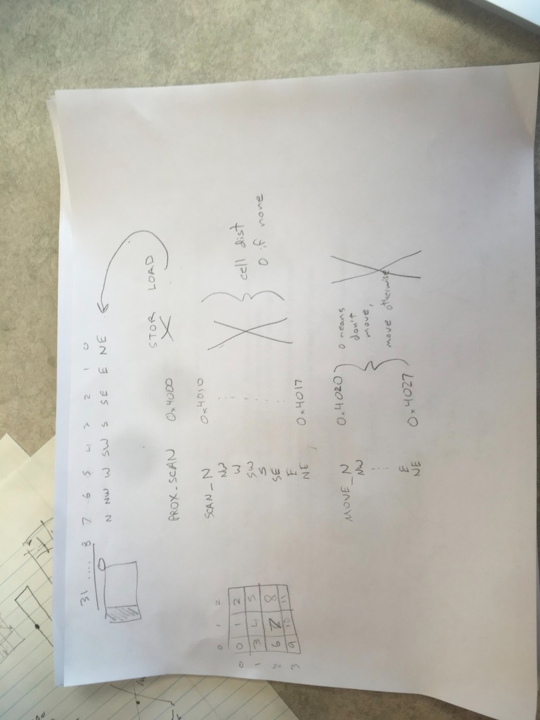 31 ..... 8 7 6 5 4 3 2 1 0
N NW W SW S SE E NE
0
STOR LOAD
PROX_SCAN 0x4000
SCAN_N 0x4010
NW
W
SW
S
SE
E
NE 0x4017
cell dist
0 if none
MOVE_N 0x4020
NW
E
NE 0x4027
0 means
don't
move,
move otherwise
0 1 2
0 0 1 2
1 3 4 5
2 6 7 8
3 9 10 11